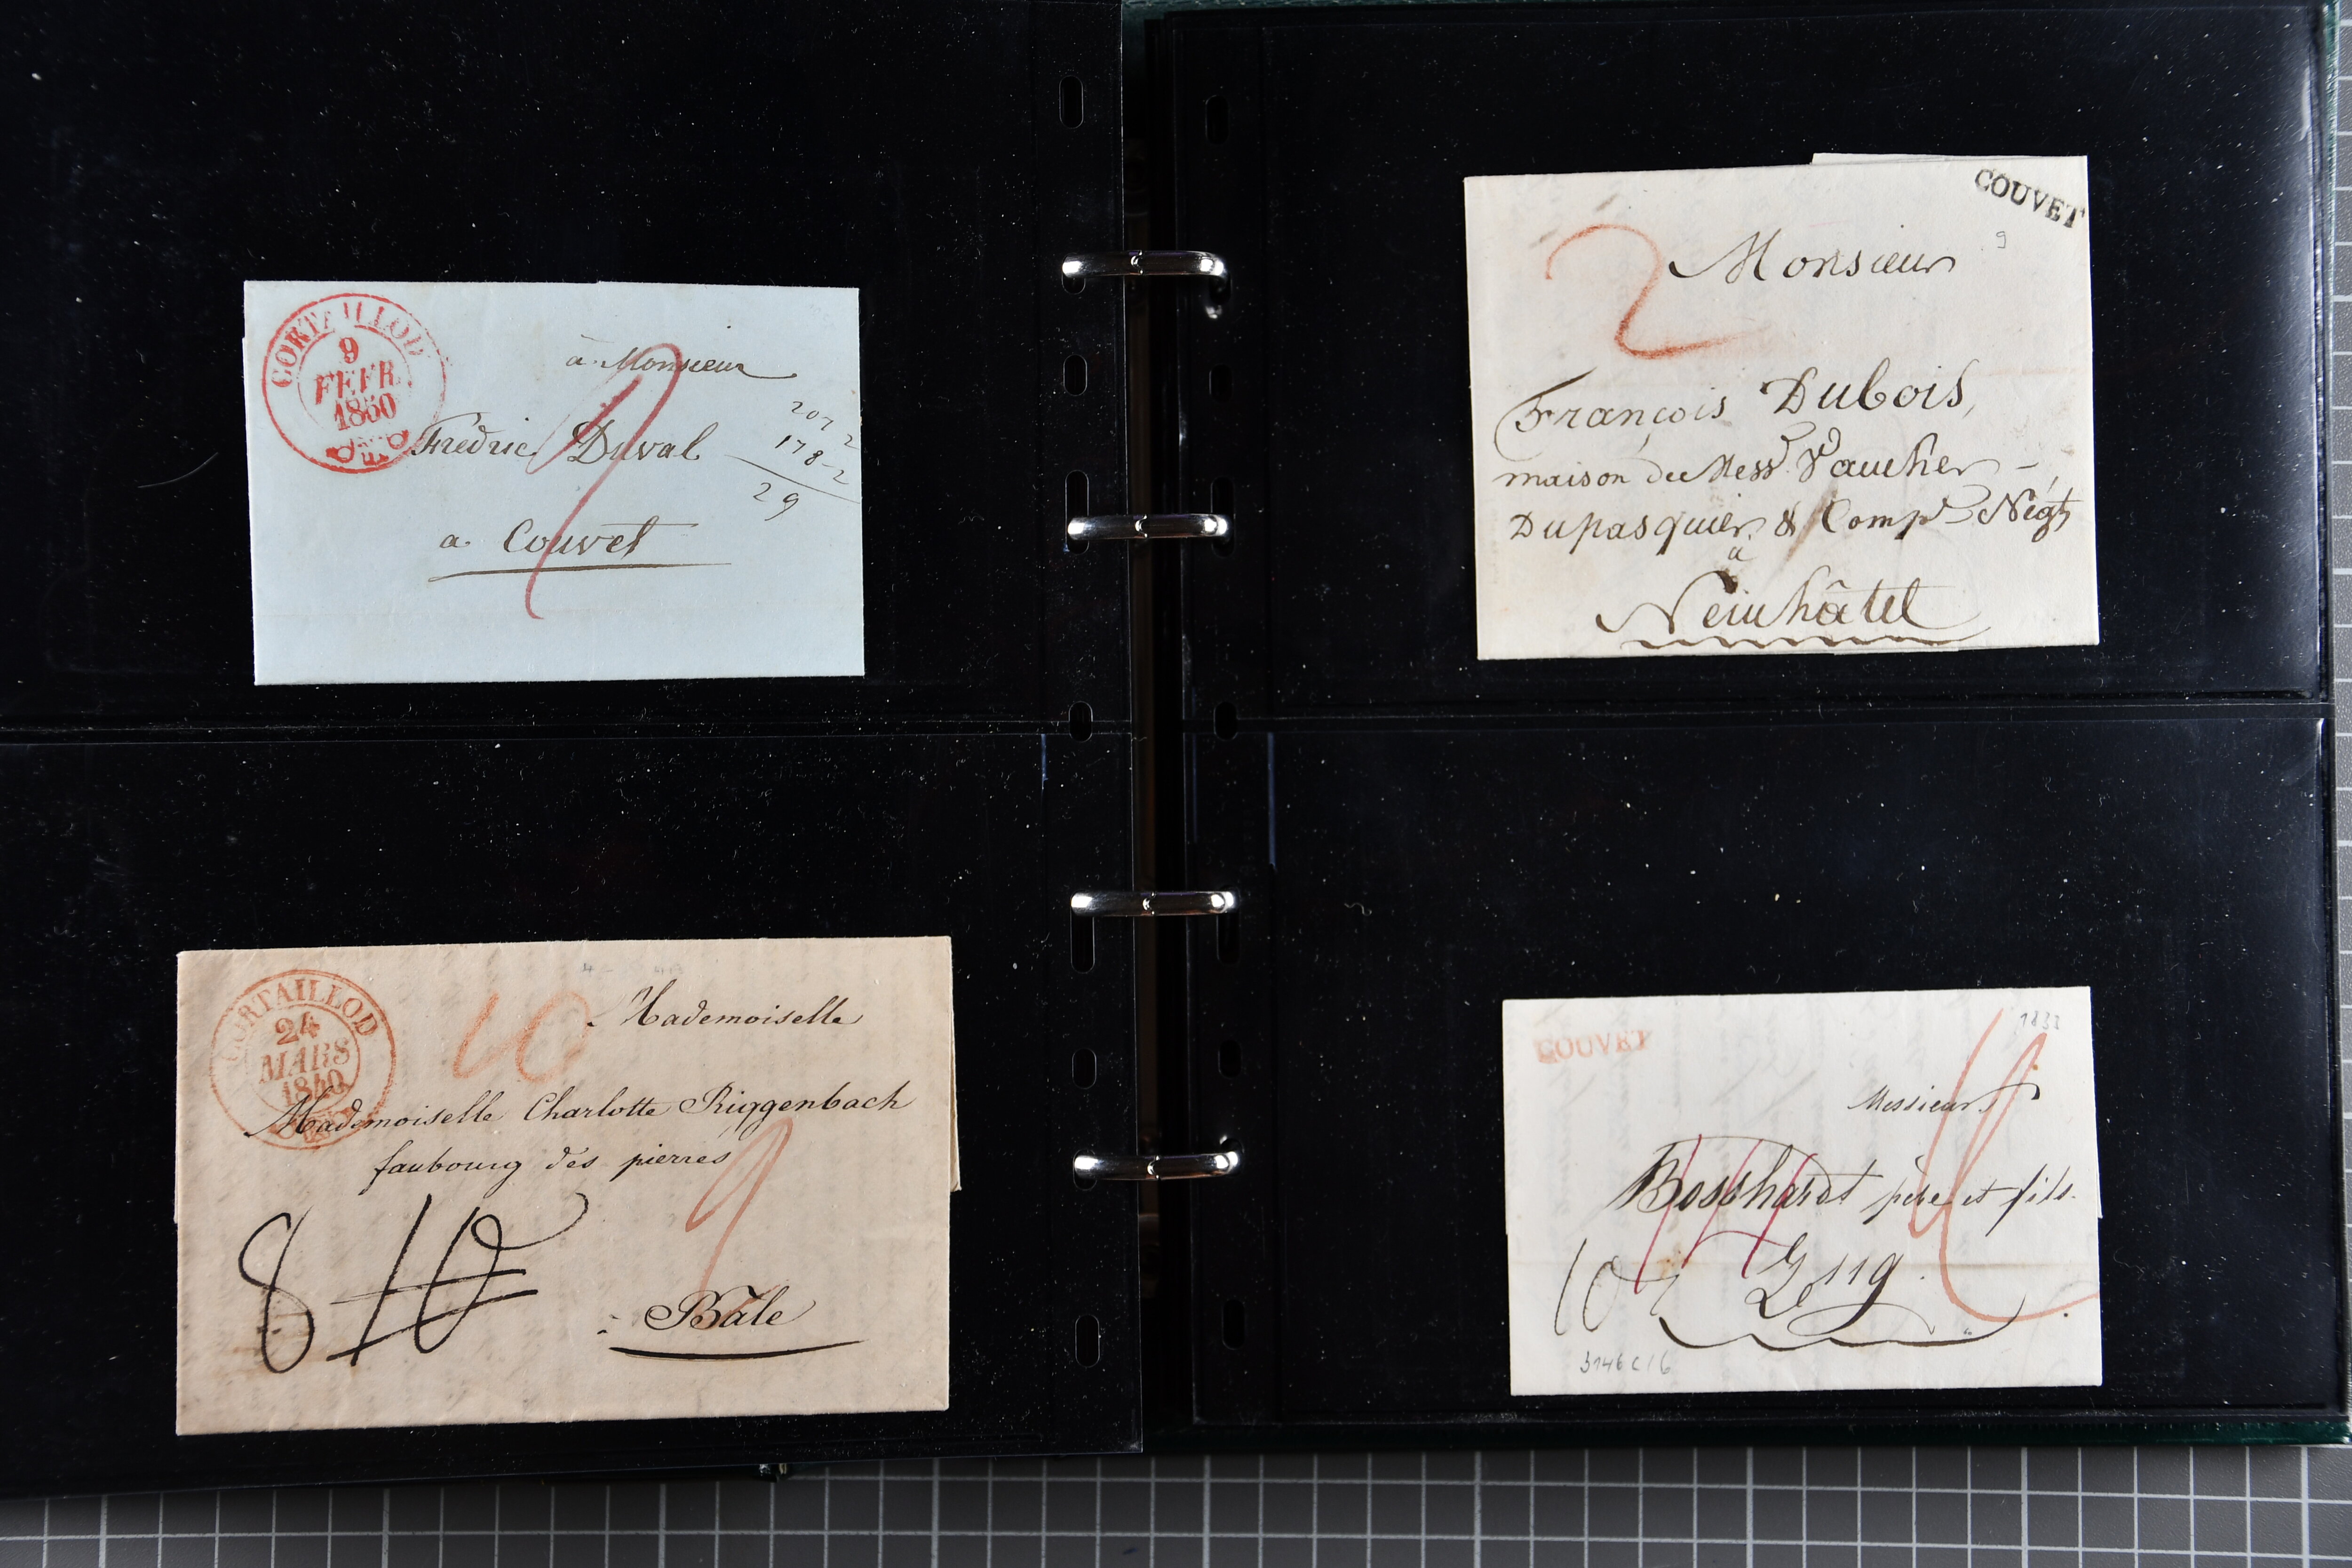 CORTAILLOD
9
FEVR
1850
2
à Monsieur
Fréderic Duval
a Couvet
207 2
178-2
29
COUVET
9
2
Monsieur
François Dubois,
maison de Messrs Vaucher
Dupasquier & Compe Négts
à
Neuchâtel
CORTAILLOD
24
MARS
1840
10
Mademoiselle
Mademoiselle Charlotte Riggenbach
faubourg des pierres
8 10
Bâle
COUVET
Messieurs
Bosshardt père et fils
10
Zug